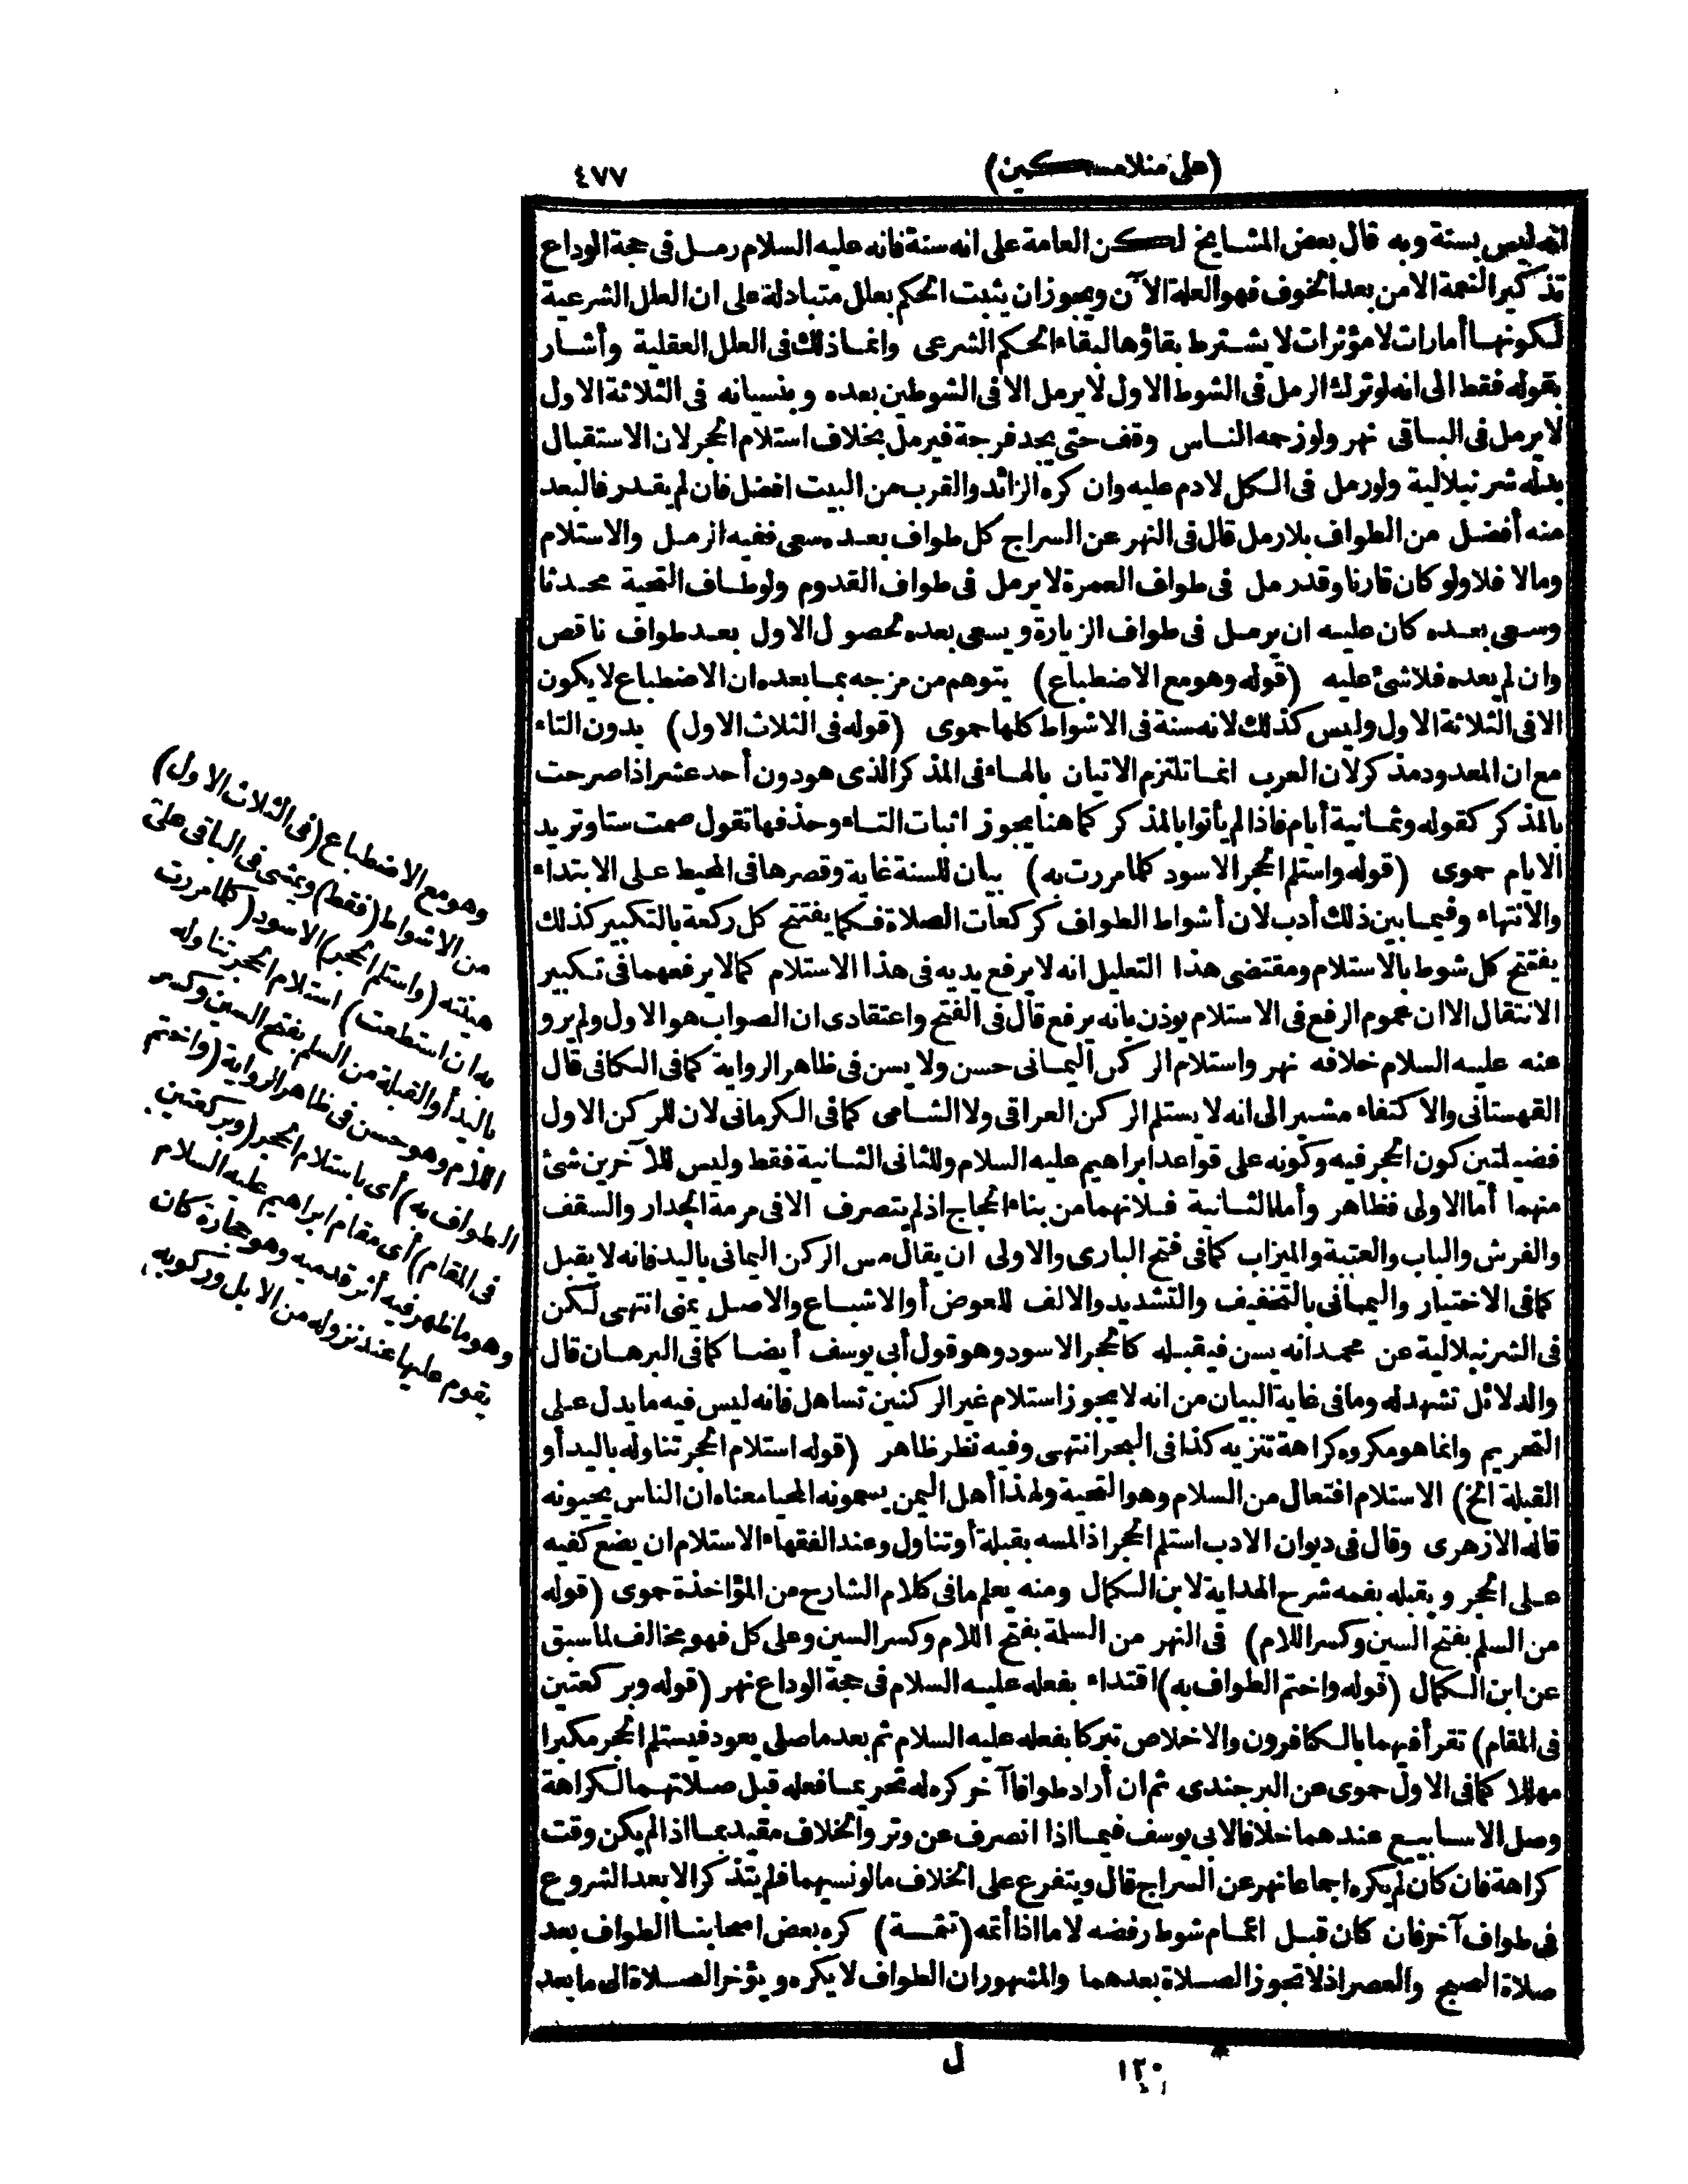 (على منلا مسكين)
٤٧٧
انه ليس بسنة وبه قال بعض المشايخ لكن العامة على انه سنة فانه عليه السلام رمل فى حجة الوداع
تذكير النعمة الامن بعد الخوف فهو العلة الآن ويجوز ان يثبت الحكم بعلل متبادلة على ان العلل الشرعية
لكونها أمارات لا مؤثرات لا يشترط بقاؤها لبقاء الحكم الشرعى وانما ذلك فى العلل العقلية وأشار
بقوله فقط الى انه لو ترك الرمل فى الشوط الاول لا يرمل الا فى الشوطين بعده وبنسيانه فى الثلاثة الاول
لا يرمل فى الباقى نهر ولو زحمه الناس وقف حتى يجد فرجة فيرمل بخلاف استلام الحجر لان الاستقبال
بدله شرنبلالية ولو رمل فى الكل لا دم عليه وان كره الزائد والقرب من البيت افضل فان لم يقدر فالبعد
منه أفضل من الطواف بلا رمل قال فى النهر عن السراج كل طواف بعده سعى ففيه الرمل والاستلام
ومالا فلا ولو كان قارنا وقد رمل فى طواف العمرة لا يرمل فى طواف القدوم ولو طاف التحية محدثا
وسعى بعده كان عليه ان يرمل فى طواف الزيارة ويسعى بعده لحصول الاول بعد طواف ناقص
وان لم يعده فلا شئ عليه (قوله وهو مع الاضطباع) يتوهم من مزجه بما بعده ان الاضطباع لا يكون
الا فى الثلاثة الاول وليس كذلك لانه سنة فى الاشواط كلها حموى (قوله فى الثلاث الاول) بدون التاء
مع ان المعدود مذكر لان العرب انما تلتزم الاتيان بالهاء فى المذكر الذى هو دون أحد عشر اذا صرحت
بالمذكر كقوله وثمانية أيام فاذا لم يأتوا بالمذكر كما هنا يجوز اثبات التاء وحذفها تقول صمت ستا وتريد
الايام حموى (قوله واستلم الحجر الاسود كلما مررت به) بيان للسنة غاية وقصرها فى المحيط على الابتداء
والانتهاء وفيما بين ذلك أدب لان أشواط الطواف كركعات الصلاة فكما يفتتح كل ركعة بالتكبير كذلك
يفتتح كل شوط بالاستلام ومقتضى هذا التعليل انه لا يرفع يديه فى هذا الاستلام كما لا يرفعهما فى تكبير
الانتقال الا ان عموم الرفع فى الاستلام يوذن بانه يرفع قال فى الفتح واعتقادى ان الصواب هو الاول ولم يرو
عنه عليه السلام خلافه نهر واستلام الركن اليمانى حسن ولا يسن فى ظاهر الرواية كما فى الكافى قال
القهستانى والاكتفاء مشير الى انه لا يستلم الركن العراقى ولا الشامى كما فى الكرمانى لان للركن الاول
فضيلتين كون الحجر فيه وكونه على قواعد ابراهيم عليه السلام وللثانى الثانية فقط وليس للآخرين شئ
منهما أما الاولى فظاهر وأما الثانية فلانهما من بناء الحجاج اذ لم يتصرف الا فى مرمة الجدار والسقف
والفرش والباب والعتبة والميزاب كما فى فتح البارى والاولى ان يقال مس الركن اليمانى باليد فانه لا يقبل
كما فى الاختيار واليمانى بالتخفيف والتشديد والالف للعوض أو الاشباع والاصل يمنى انتهى لكن
فى الشرنبلالية عن محمد انه يسن فيقبله كالحجر الاسود وهو قول أبى يوسف أيضا كما فى البرهان قال
والدلائل تشهد له وما فى غاية البيان من انه لا يجوز استلام غير الركنين تساهل فانه ليس فيه ما يدل على
التحريم وانما هو مكروه كراهة تنزيه كذا فى البحر انتهى وفيه نظر ظاهر (قوله استلام الحجر تناوله باليد أو
القبلة الخ) الاستلام افتعال من السلام وهو التحية ولهذا أهل اليمن يسمونه المحيا معناه ان الناس يحيونه
قاله الازهرى وقال فى ديوان الادب استلم الحجر اذا لمسه بقبلة أو تناول وعند الفقهاء الاستلام ان يضع كفيه
على الحجر ويقبله بفمه شرح الهداية لابن الكمال ومنه يعلم ما فى كلام الشارح من المؤاخذة حموى (قوله
من السلم بفتح السين وكسر اللام) فى النهر من السلمة بفتح اللام وكسر السين وعلى كل فهو مخالف لما سبق
عن ابن الكمال (قوله واختم الطواف به) اقتداء بفعله عليه السلام فى حجة الوداع نهر (قوله وبركعتين
فى المقام) تقرأ فيهما بالكافرون والاخلاص تبركا بفعله عليه السلام ثم بعد ما صلى يعود فيستلم الحجر مكبرا
مهللا كما فى الاول حموى عن البرجندى ثم ان أراد طوافا آخر كره له تحريما فعله قبل صلاتهما لكراهة
وصل الاسابيع عندهما خلافا لابى يوسف فيما اذا انصرف عن وتر والخلاف مقيد بما اذا لم يكن وقت
كراهة فان كان لم يكره اجماعا نهر عن السراج قال ويتفرع على الخلاف ما لو نسيهما فلم يتذكر الا بعد الشروع
فى طواف آخر فان كان قبل اتمام شوط رفضه لا ما اذا أتمه (تتمة) كره بعض اصحابنا الطواف بعد
صلاة الصبح والعصر اذ لا تجوز الصلاة بعدهما والمشهور ان الطواف لا يكره ويؤخر الصلاة الى ما بعد
وهو مع الاضطباع (فى الثلاث الاول)
من الاشواط (فقط) ويمشى فى الباقى على
هينته (واستلم الحجر) الاسود (كلما مررت
به ان استطعت) استلام الحجر تناوله
باليد أو القبلة من السلم بفتح السين وكسر
اللام وهو حسن فى ظاهر الرواية (واختم
الطواف به) أى باستلام الحجر (وبركعتين
فى المقام) أى مقام ابراهيم عليه السلام
وهو ما ظهر فيه أثر قدميه وهو حجارة كان
يقوم عليها عند نزوله من الابل وركوبه
١٢٠
ل